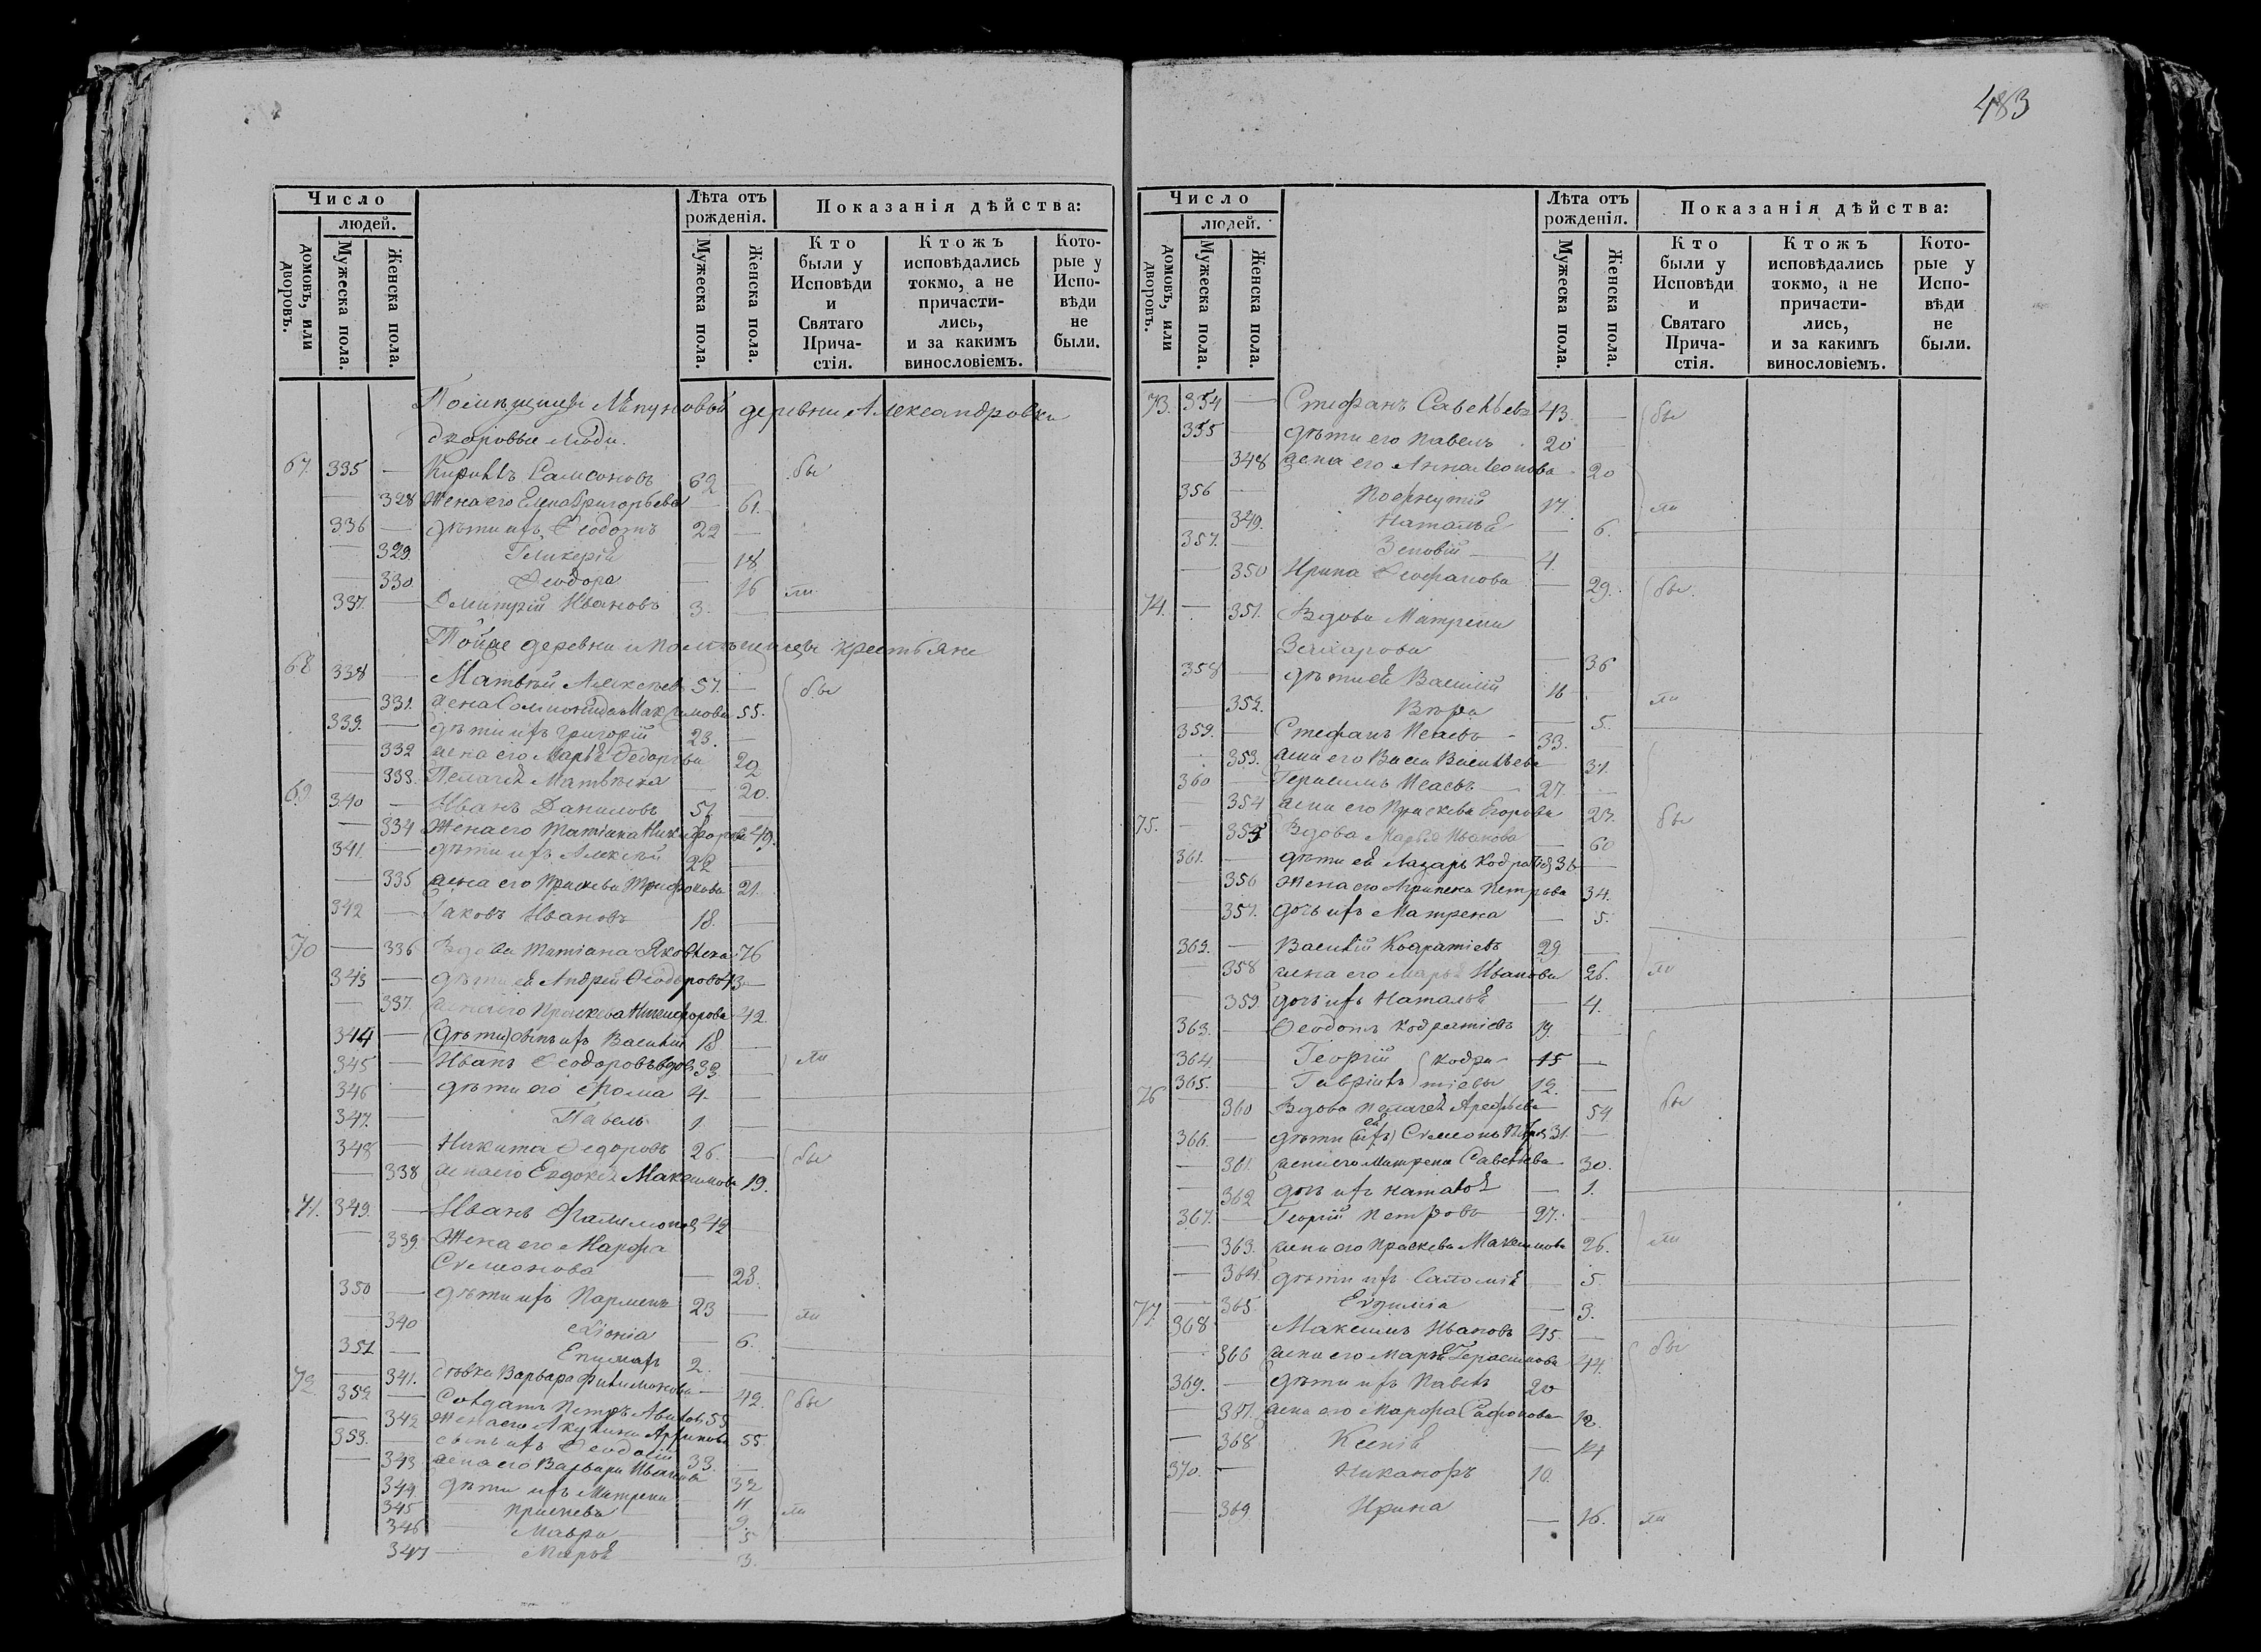 483
Число
людей.
домовъ, или дворовъ.
Мужеска пола.
Женска пола.
Лѣта отъ рожденія.
Мужеска пола.
Женска пола.
Показанія дѣйства:
Кто были у Исповѣди и Святаго Прича-стія.
Ктожъ исповѣдались токмо, а не причасти-лись, и за какимъ винословіемъ.
Кото-рые у Испо-вѣди не были.
деревни Александровки
дворовые люди.
67. 335 — Кириллъ Самсоновъ 62 — бы
— 328 Жена его Елена Григорьева — 61.
336 — дѣти ихъ Ѳеодотъ 22 —
— 329 Гликерія — 18
— 330 Ѳеодора — 16 ли
337. — Димитрій Ивановъ 3. —
Тойже деревни и помѣщицы крестьяне
68 338 — Матвѣй Алексѣевъ 57. — бы
— 331. жена Соломонида Максимова 55.
339. — дѣти ихъ Григорій 23. —
— 332 жена его Марья Ѳедорова 22
— 333. Пелагея Матвѣева — 20.
69. 340 — Иванъ Даниловъ 51 —
— 334 Жена его Татіана Никифорова 49.
341. — дѣти ихъ Алексѣй 22 —
— 335 жена его Прасковья Трифонова 21.
342 — Іаковъ Ивановъ 18. —
70 — 336 Вдова Татіана Яковлева 76
343 — дѣти ея Андрей Ѳеодоровъ 43 —
— 337. жена его Параскева Никифорова 42.
344 — (дѣти) сынъ ихъ Василій 18 —
345 — Иванъ Ѳеодоровъ вдов 33. — ли
346 — дѣти его Ѳома 4. —
347. — Павелъ 1. —
348 — Никита Ѳедоровъ 26. — бы
— 338 жена его Евдокія Максимова 19.
71. 349. — Иванъ Филимонов 42
— 339. Жена его Марфа
Сѵмеонова — 28.
350 — дѣти ихъ Парменъ 23 — ли
340 Хіонія — 6.
351 — Епимахъ 2.
— 341. дѣвка Варвара Филимонова — 42.
72. 352 — Солдатъ Петръ 55. бы
— 342 Жена его Акулина Архипова 55.
353. — сынъ ихъ Ѳеодосій 33.
— 343 жена его Варвара Иванова 32
344 дѣти ихъ Матрена 11
345 Прасковья 9. ли
346 Мавра 5
347 — Марья 3.
Число
людей.
домовъ, или дворовъ.
Мужеска пола.
Женска пола.
Лѣта отъ рожденія.
Мужеска пола.
Женска пола.
Показанія дѣйства:
Кто были у Исповѣди и Святаго Прича-стія.
Ктожъ исповѣдались токмо, а не причасти-лись, и за какимъ винословіемъ.
Кото-рые у Испо-вѣди не были.
73. 354 — Стефанъ Савельевъ 43. — бы
355 — дѣти его Павелъ 20 —
— 348 жена его Анна Леонова 20
356 — Пафнутій 17. ли
— 349. Наталья — 6.
357. — Зеновій — 4.
— 350 Ирина Ѳеофанова — 29. бы
74. — 351. Вдова Матрена
Захарова — 36
358 — дѣти ея Василій 16 — ли
— 352. Вѣра — 5.
359. — Стефанъ Исаевъ 33. —
— 353. жена его Васса Васильева 31.
360 — Герасимъ Исаевъ 27. —
— 354 жена его Праскева Егорова 23. бы
75. — 355 Вдова Марья Иванова — 60
361. — дѣти ея Лазарь Кодратіев 36 —
— 356 Жена его Агрипена Петрова 34.
— 357. дочь ихъ Матрена — 5.
362. — Василій Кодратіевъ 29 —
— 358 жена его Марья Иванова 26. ли
— 359. дочь ихъ Наталья — 4.
363. — Ѳеодотъ Кодратіевъ 19. —
364. — Георгій Кодра- 15 —
365. — Гавріилъ тіевы 12. —
76 — 360 Вдова Пелагея Арефьева 54 бы
366. — дѣти (ихъ) ея Сѵмеонъ Петров 31. —
— 361. жена его Матрена Савельева 30.
— 362 дочь ихъ Наталья — 1.
367. — Георгій Петровъ 27. —
— 363. жена его Праскева Максимова 26. ли
— 364. дѣти ихъ Саломія — 5.
— 365. Евфимія — 3.
77. 368 Максимъ Ивановъ 45. —
— 366 жена его Марья Герасимова 44. бы
369. — дѣти ихъ Павелъ 20
— 367. жена его Марфа Сафонова
— 368 Ксенія — 14
370. — Никаноръ 10.
— 369 Ирина — 16. ли